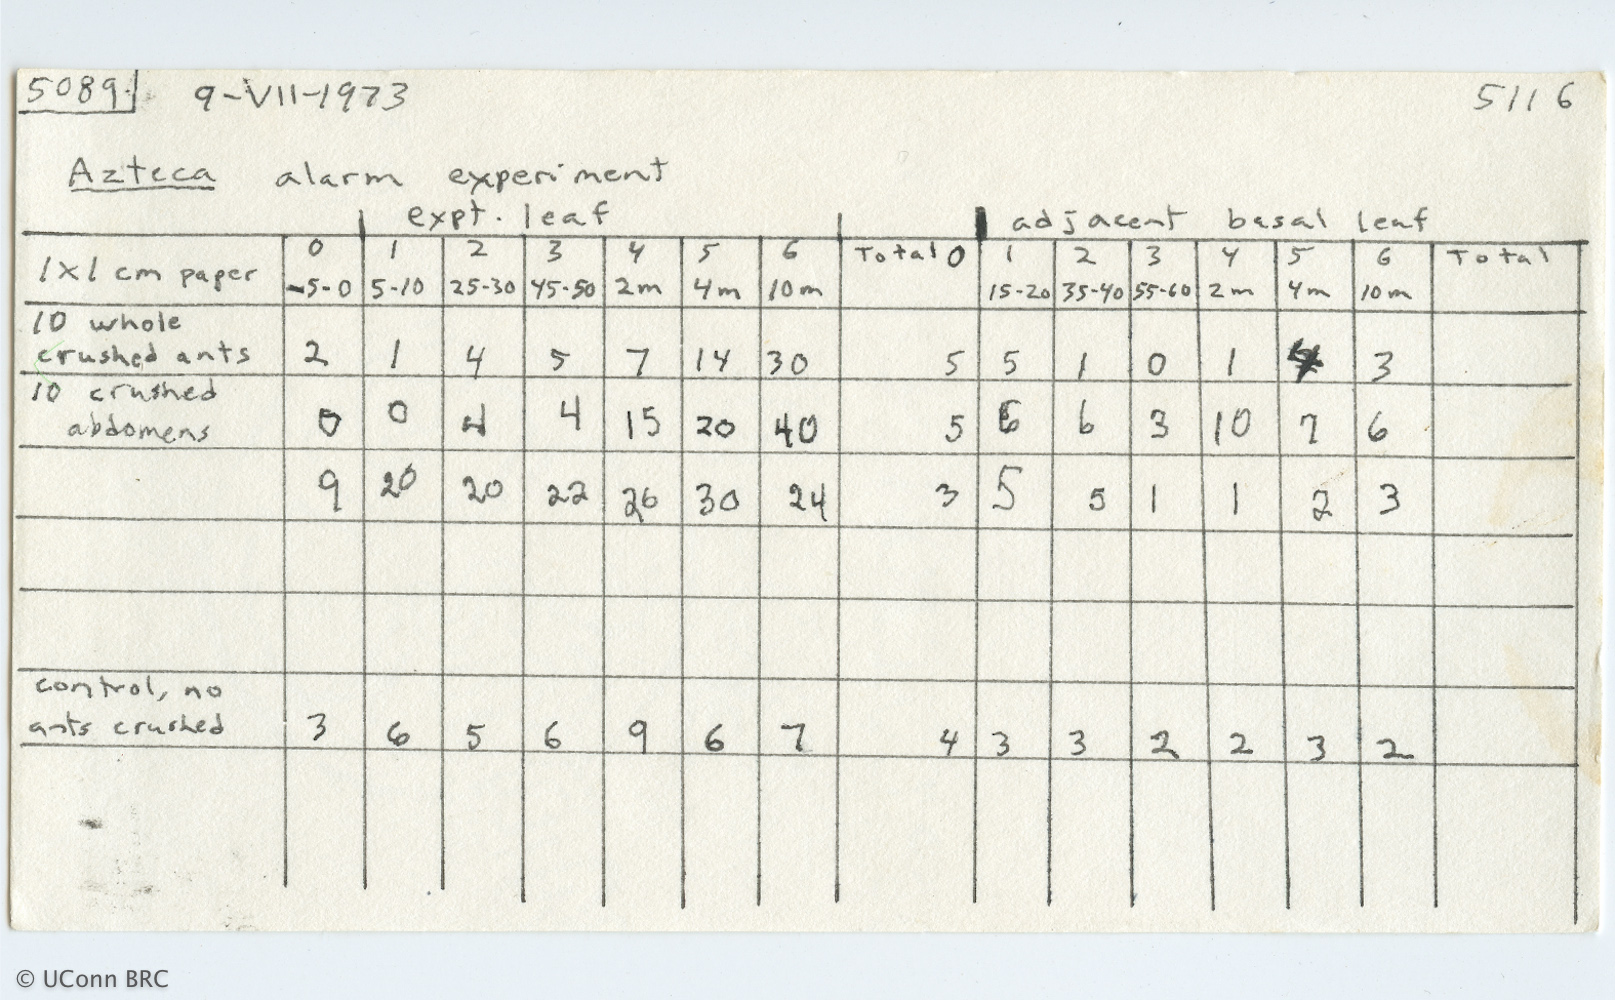 5089. 9-VII-1973 5116
Azteca alarm experiment
expt. leaf adjacent basal leaf
1x1 cm paper 0 1 2 3 4 5 6 Total 0 1 2 3 4 5 6 Total
-5-0 5-10 25-30 45-50 2m 4m 10m 15-20 35-40 55-60 2m 4m 10m
10 whole
crushed ants 2 1 4 5 7 14 30 5 5 1 0 1 3
10 crushed
abdomens 0 0 4 4 15 20 40 5 6 6 3 10 7 6
9 20 20 22 26 30 24 3 5 5 1 1 2 3
control, no
ants crushed 3 6 5 6 9 6 7 4 3 3 2 2 3 2
© UConn BRC